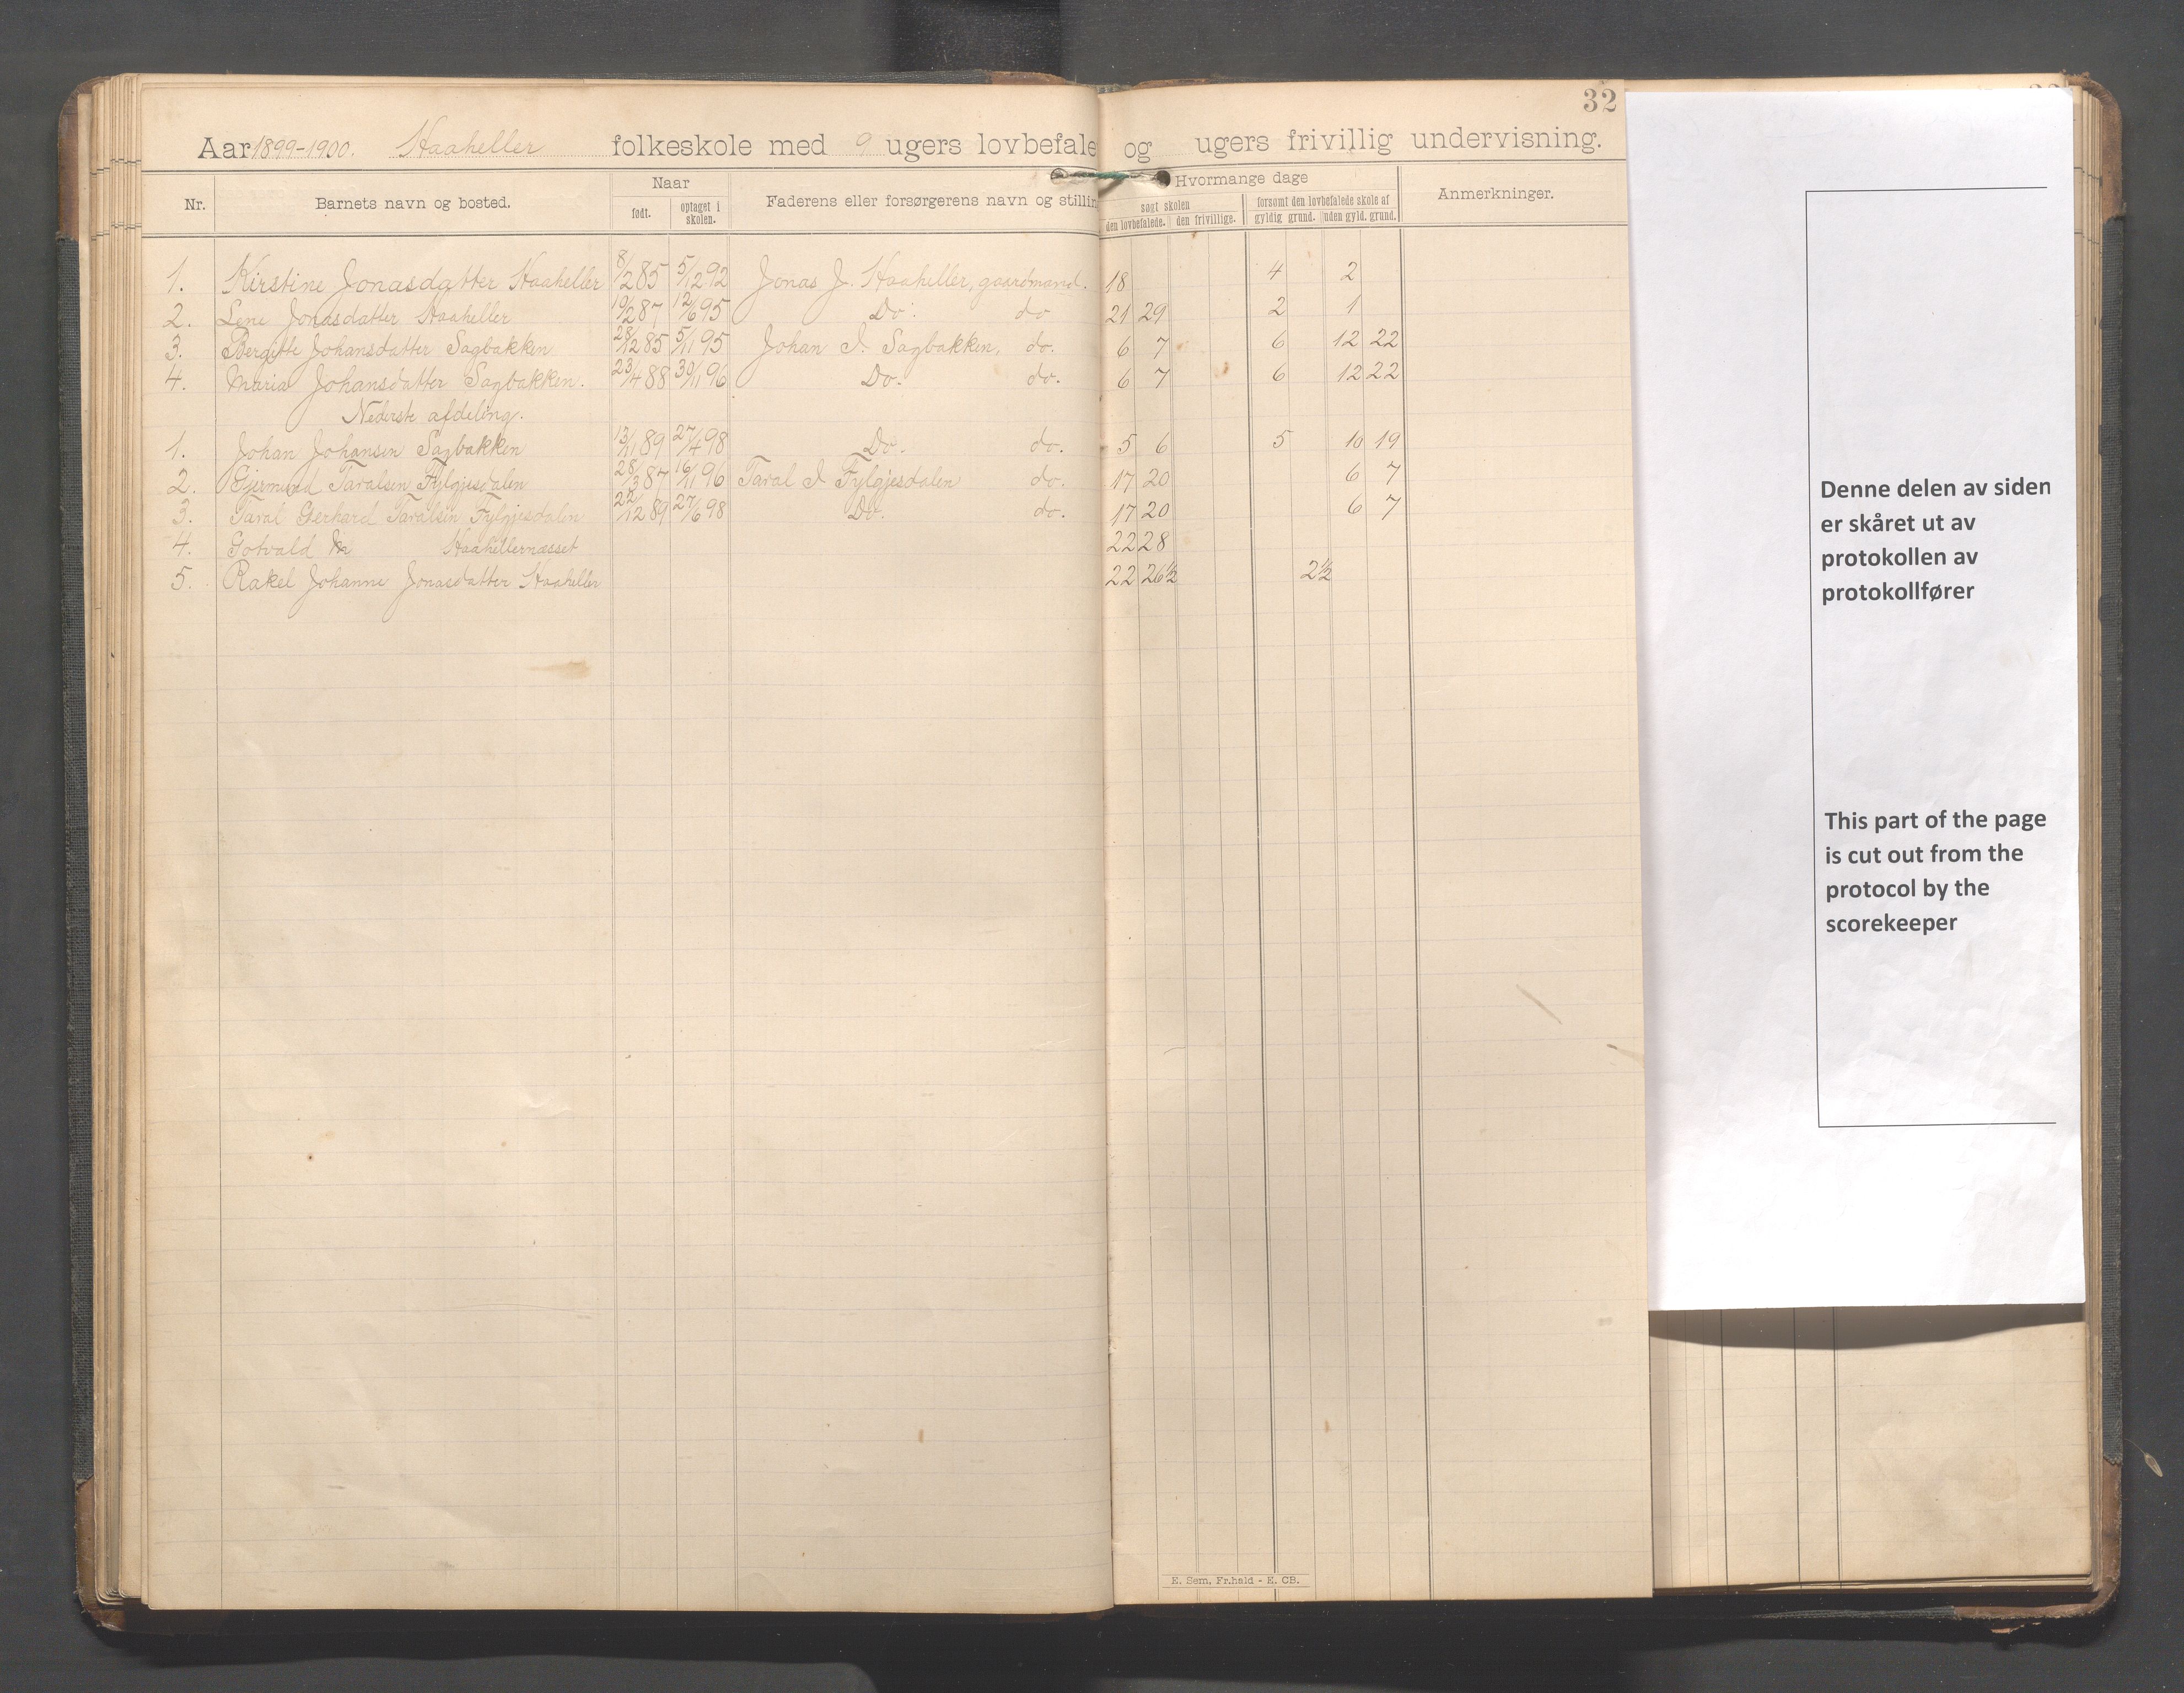 32
Aar 1899-1900. Haaheller folkeskole med 9 ugers lovbefale og ugers frivillig undervisning.
Nr. Barnets navn og bosted. Naar Faderens eller forsørgerens navn og stillin Hvormange dage Anmerkninger.
født. optaget i skolen. søgt skolen forsømt den lovbefalede skole af
den lovbefalede. den frivillige. gyldig grund. uden gyld. grund.
1. Kirstine Jonasdatter Haaheller 8/2 85 5/12 92 Jonas J. Haaheller, gaardmand. 18 4 2
2. Lene Jonasdatter Haaheller 19/2 87 12/6 95 Do. do 21 29 2 1
3. Bergitte Johansdatter Sagbakken 28/12 85 5/11 95 Johan I. Sagbakken, do. 6 7 6 12 22
4. Maria Johansdatter Sagbakken. 23/4 88 30/11 96 Do. do. 6 7 6 12 22
Nederste afdeling.
1. Johan Johansen Sagbakken 13/11 89 27/4 98 Do. do. 5 6 5 10 19
2. Gjermund Taralsen Fylgjesdalen 28/3 87 16/11 96 Taral I Fylgjesdalen do. 17 20 6 7
3. Taral Gerhard Taralsen Fylgjesdalen 22/12 89 27/6 98 Do. do. 17 20 6 7
4. Gotvald Haahellernæsset 22 28
5. Rakel Johanne Jonasdatter Haaheller 22 26½ 2½
E. Sem, Fr.hald - E. CB.
Denne delen av siden
er skåret ut av
protokollen av
protokollfører
This part of the page
is cut out from the
protocol by the
scorekeeper